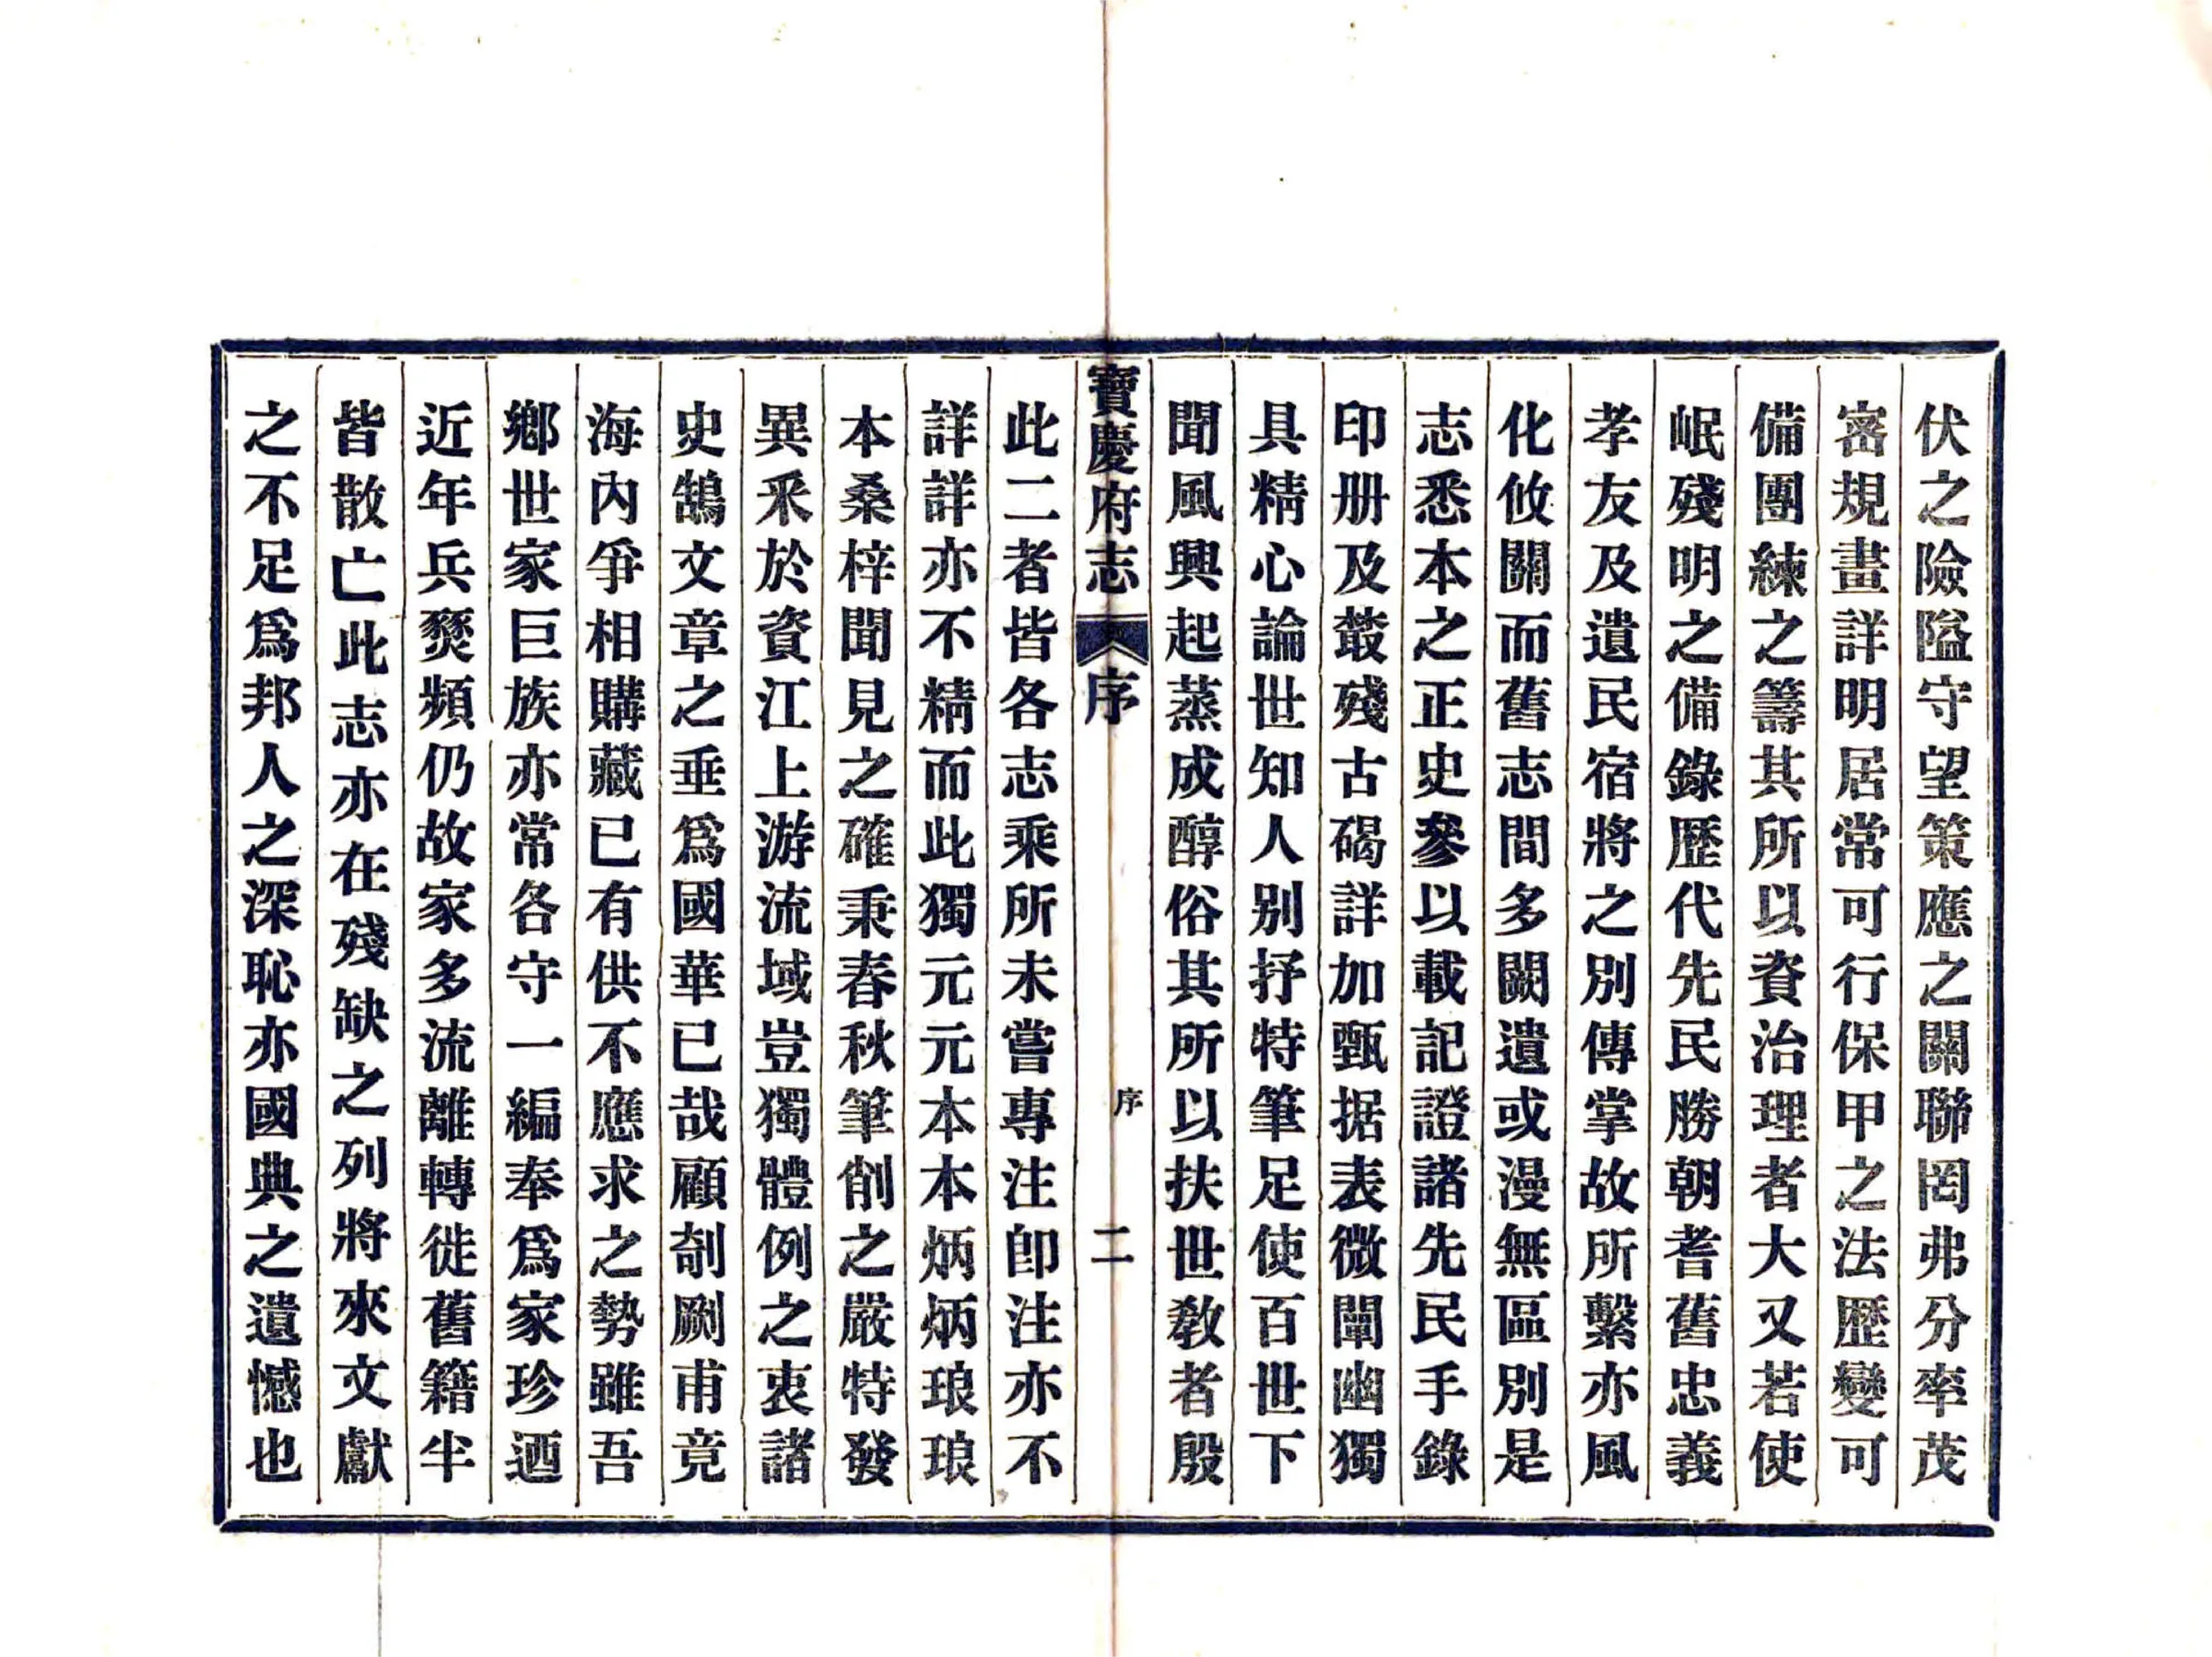 伏之險隘守望策應之關聯罔弗分率茂
密規畫詳明居常可行保甲之法歷變可
備團練之籌其所以資治理者大又若使
岷殘明之備錄歷代先民勝朝耆舊忠義
孝友及遺民宿將之別傳掌故所繫亦風
化攸關而舊志間多闕遺或漫無區別是
志悉本之正史參以載記證諸先民手錄
印册及叢殘古碣詳加甄据表微闡幽獨
具精心論世知人別抒特筆足使百世下
聞風興起蒸成醇俗其所以扶世敎者殷
寶慶府志 序 序 二
此二者皆各志乘所未嘗專注卽注亦不
詳詳亦不精而此獨元元本本炳炳琅琅
本桑梓聞見之確秉春秋筆削之嚴特發
異釆於資江上游流域豈獨體例之衷諸
史鵠文章之垂爲國華已哉顧剞劂甫竟
海內爭相購藏已有供不應求之勢雖吾
鄉世家巨族亦常各守一編奉爲家珍迺
近年兵燹頻仍故家多流離轉徙舊籍半
皆散亡此志亦在殘缺之列將來文獻
之不足爲邦人之深恥亦國典之遺憾也